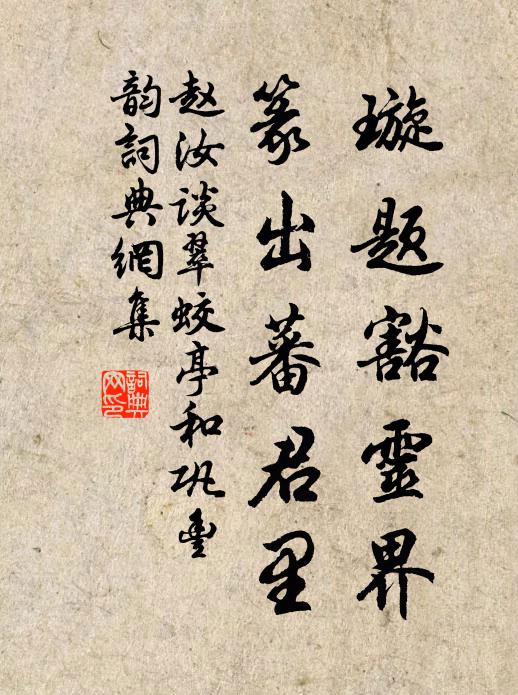 璇题豁靈界
篆出蕃君里
赵汝谈翠蛟亭和巩豊
韵詞典網集
詞典网印